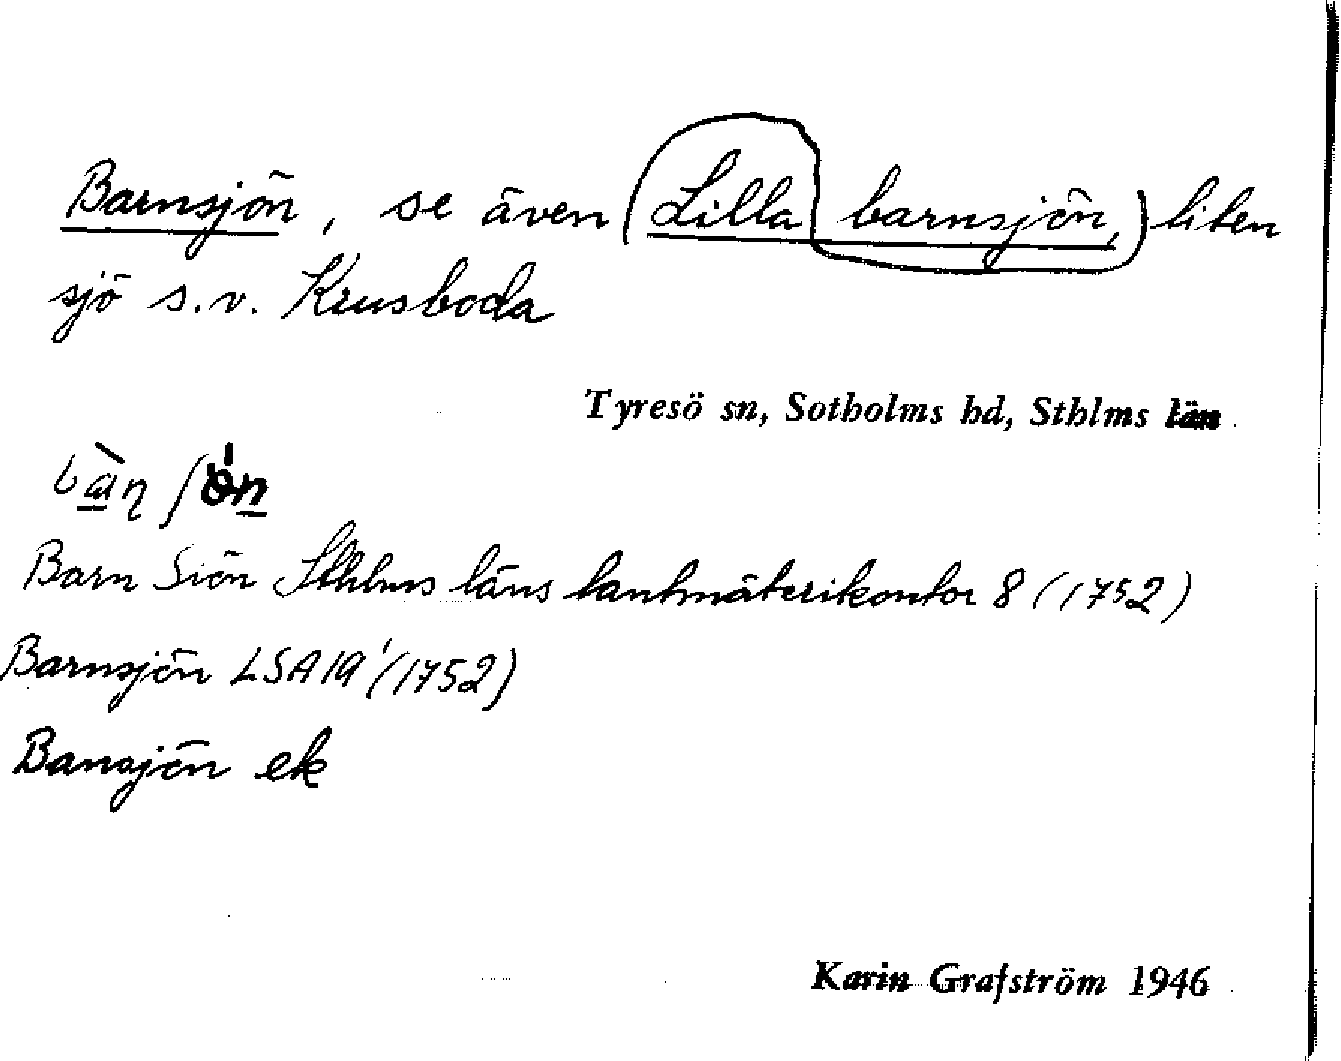 Barnsjön, se även (Lilla barnsjön,) liten
sjö s.v. Krusboda
Tyresö sn, Sotholms hd, Sthlms län
Barn Siön Sthlms läns lantmäterikontor 8 (1752)
Barnsjön LSA 19' (1752)
Bansjön ek
Karin Grafström 1946